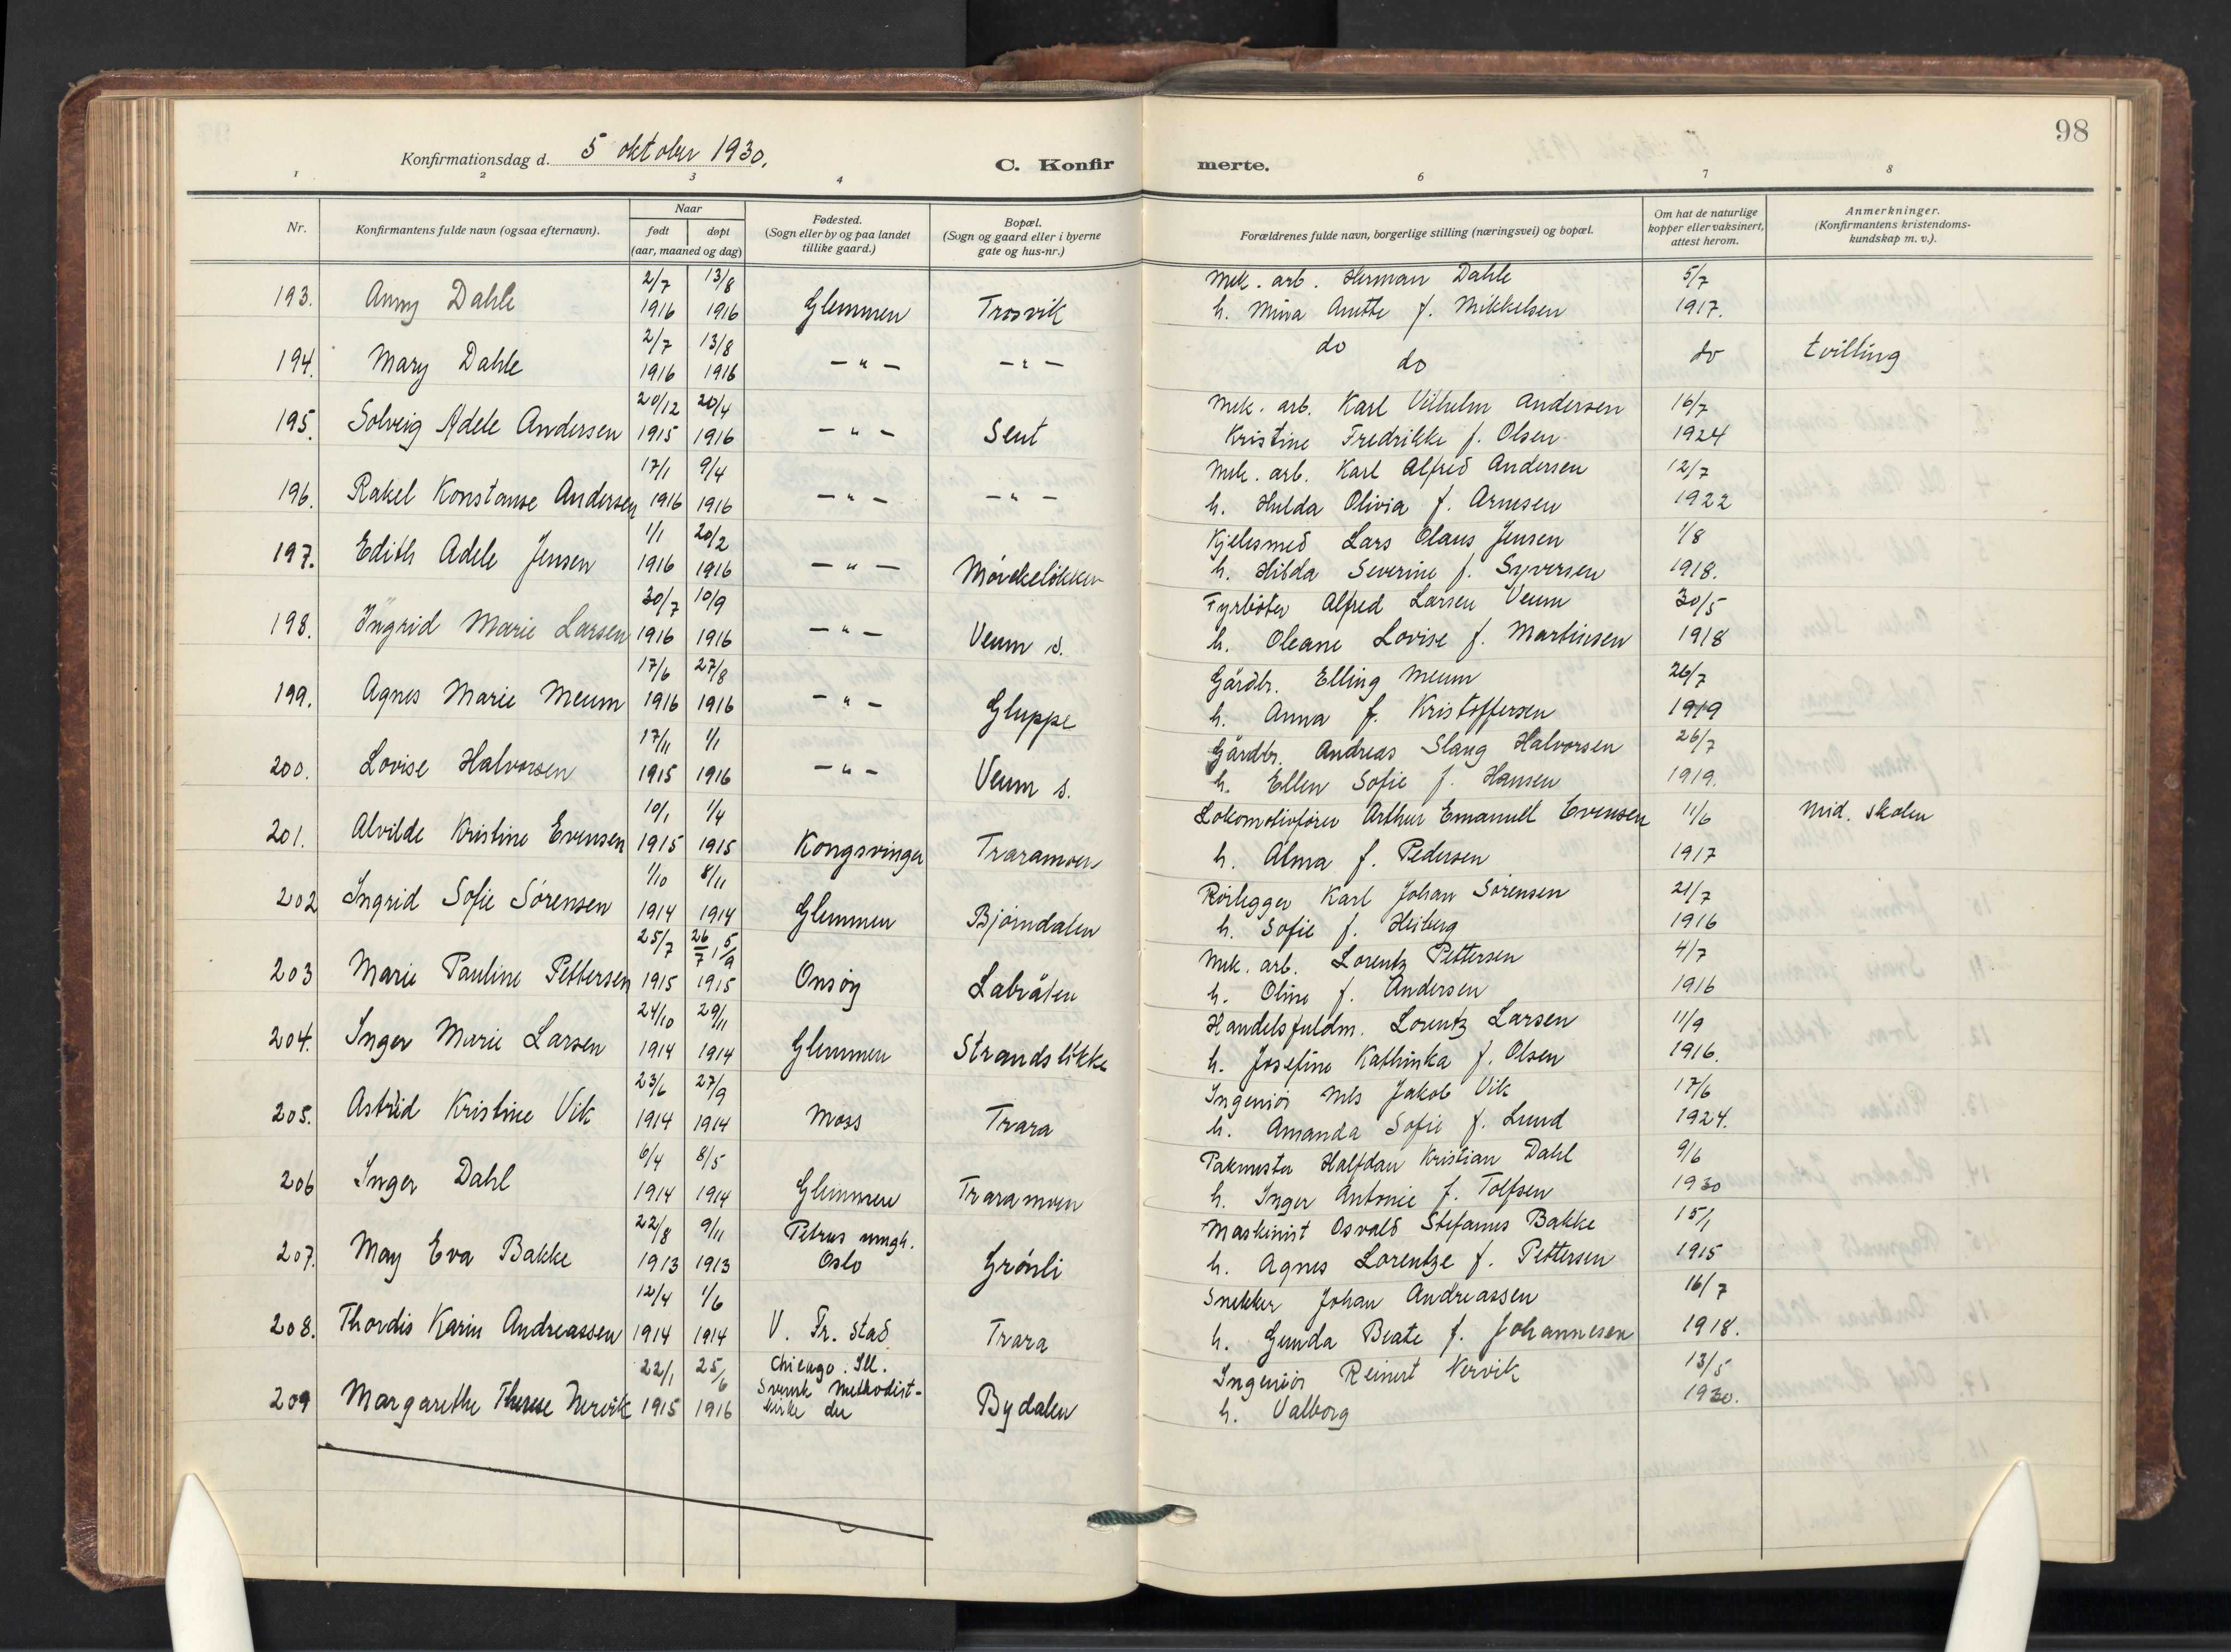 98
Konfirmationsdag d. 5 oktober 1930.
C. Konfirmerte.
1 2 3 4 6 7 8
Nr.
Konfirmantens fulde navn (ogsaa efternavn).
Naar
født døpt
(aar, maaned og dag)
Fødested.
(Sogn eller by og paa landet
tillike gaard.)
Bopæl.
(Sogn og gaard eller i byerne
gate og hus-nr.)
Forældrenes fulde navn, borgerlige stilling (næringsvei) og bopæl.
Om hat de naturlige
kopper eller vaksinert,
attest herom.
Anmerkninger.
(Konfirmantens kristendoms-
kundskap m. v.).
2/7 13/8 Mek. arb. Herman Dahle 5/7
193. Anny Dahle 1916 1916 Glemmen Trosvik h. Mina Anette f. Mikkelsen 1917.
2/7 13/8 do
194. Mary Dahle 1916 1916 – " – – " – do do tvilling
20/12 20/4 Mek. arb. Karl Vilhelm Andersen 16/7
195. Solveig Adele Andersen 1915 1916 – " – Sent Kristine Fredrikke f. Olsen 1924
17/1 9/4 Mek. arb. Karl Alfred Andersen 12/7
196. Rakel Konstanse Andersen 1916 1916 – " – – " – h. Hulda Olivia f. Arnesen 1922
1/1 20/2 Kjelesmed Lars Olaus Jensen 1/8
197. Edith Adele Jensen 1916 1916 – " – Mørckeløkken h. Hilda Severine f. Syversen 1918.
30/7 10/9 Fyrbøter Alfred Larsen Veum 30/5
198. Ingrid Marie Larsen 1916 1916 – " – Veum s. h. Oleane Lovise f. Martinsen 1918
17/6 27/8 Gårdbr. Elling Meum 26/7
199. Agnes Marie Meum 1916 1916 – " – Gluppe h. Anna f. Kristoffersen 1919
17/11 1/1 Gårdbr. Andreas Slang Halvorsen 26/7
200. Lovise Halvorsen 1915 1916 – " – Veum s. h. Ellen Sofie f. Hansen 1919.
10/1 1/4 Lokomotivfører Arthur Emanuel Evensen 11/6 Mid. skolen
201. Alvilde Kristine Evensen 1915 1915 Kongsvinger Traramoen h. Alma f. Pedersen 1917
1/10 8/11 Rørlegger Karl Johan Sørensen 21/7
202 Ingrid Sofie Sørensen 1914 1914 Glemmen Bjørndalen h. Sofie f. Heiberg 1916
25/7 26/7, 5/9 Mek. arb. Lorentz Pettersen 4/7
203 Marie Pauline Pettersen 1915 1915 Onsøy Labråten h. Oline f. Andersen 1916
24/10 29/11 Handelsfuldm. Lorentz Larsen 11/9
204. Inger Marie Larsen 1914 1914 Glemmen Strandsløkke h. Josefine Kathinka f. Olsen 1916.
23/6 27/9 Ingeniør Nils Jakob Vik 17/6
205. Astrid Kristine Vik 1914 1914 Moss Trara h. Amanda Sofie f. Lund 1924.
6/4 8/5 Pakmester Halfdan Kristian Dahl 9/6
206 Inger Dahl 1914 1914 Glemmen Traramoen h. Inger Antonie f. Tolfsen 1930
22/8 9/11 Petrus mngh. Maskinist Osvald Stefanus Bakke 15/1
207. May Eva Bakke 1913 1913 Oslo Grønli h. Agnes Lorentze f. Pettersen 1915
12/4 1/6 Snekker Johan Andreassen 16/7
208. Thordis Karin Andreassen 1914 1914 V. Fr. stad Trara h. Gunda Beate f. Johannesen 1918.
22/1 25/6 Chicago. Ill. Ingeniør Reinert Nervik 13/5
Svensk Methodist-
209 Margarethe Therese Nervik 1915 1916 kirke der Bydalen h. Valborg 1930.